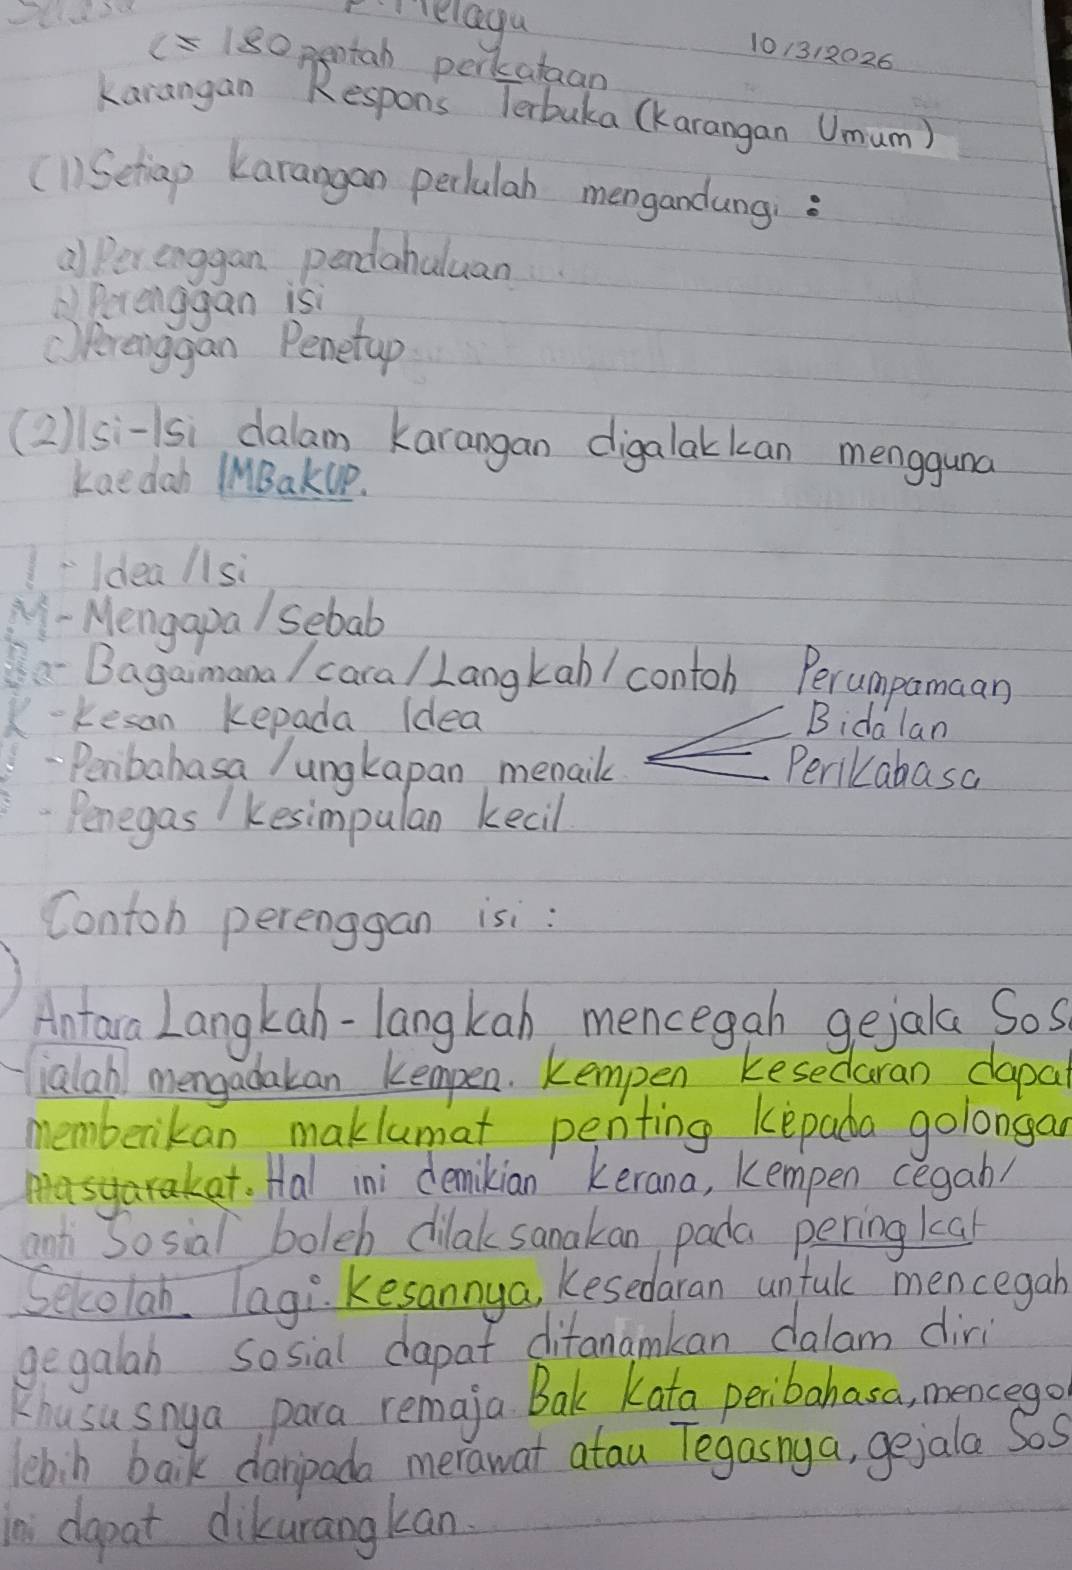 Melagu
10/3/2026
180 patah perkataan
Karangan Respons Terbuka (Karangan Umum)
(1) Setiap Karangan perlulah mengandungi :
a) Perenggan pendahuluan
b) Perenggan isi
c) Perenggan Penetup
(2) Isi-Isi dalam Karangan digalakkan mengguna
kaedah IMBaKUP.
- Idea / Isi
M - Mengapa / Sebab
Ba - Bagaimana / cara / Langkah / contoh Perumpamaan
K - Kesan kepada Idea Bidalan
- Peribahasa / ungkapan menaik Perikabasa
- Penegas / kesimpulan kecil
Contoh perenggan isi :
Antara Langkah-langkah mencegah gejala Sos
ialah mengadakan kempen. Kempen Kesedaran dapat
memberikan maklumat penting kepada golongan
masyarakat. Hal ini demikian kerana, kempen cegah/
anti Sosial boleh dilaksanakan pada peringkat
Sekolah lagi. Kesannya, Kesedaran untuk mencegah
gegalah sosial dapat ditanamkan dalam diri
Khususnya para remaja Bak Kata peribahasa, mencega
lebih baik daripada merawat atau Tegasnya, gejala Sos
ini dapat dikurangkan.